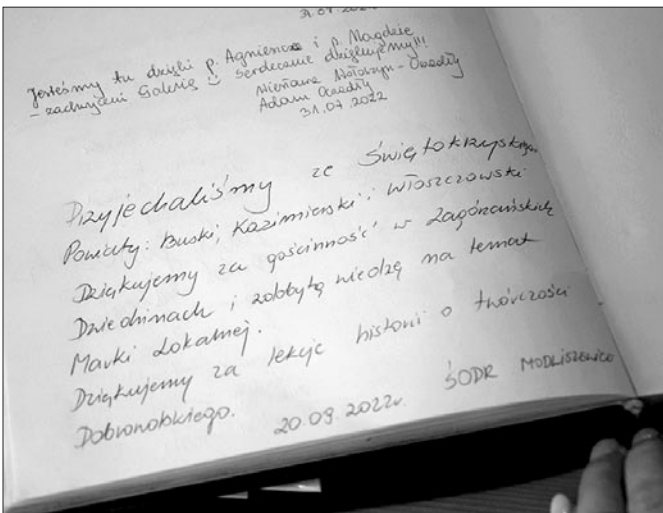 31.07.2022
Jesteśmy tu dzięki p. Agnieszce i p. Magdzie
– zachwyceni Galerią Serdecznie dziękujemy!!!
Adam
31.07.2022
Przyjechaliśmy ze Świętokrzyskiego
Powiaty: Buski, Kazimierski i Włoszczowski
Dziękujemy za gościnność w Zagórzańskich
Dziedzinach i zdobytą wiedzę na temat
Marki Lokalnej.
Dziękujemy za lekcję historii o twórczości
Dobrowolskiego.
20.09.2022r. ŚODR MODLISZEWICE